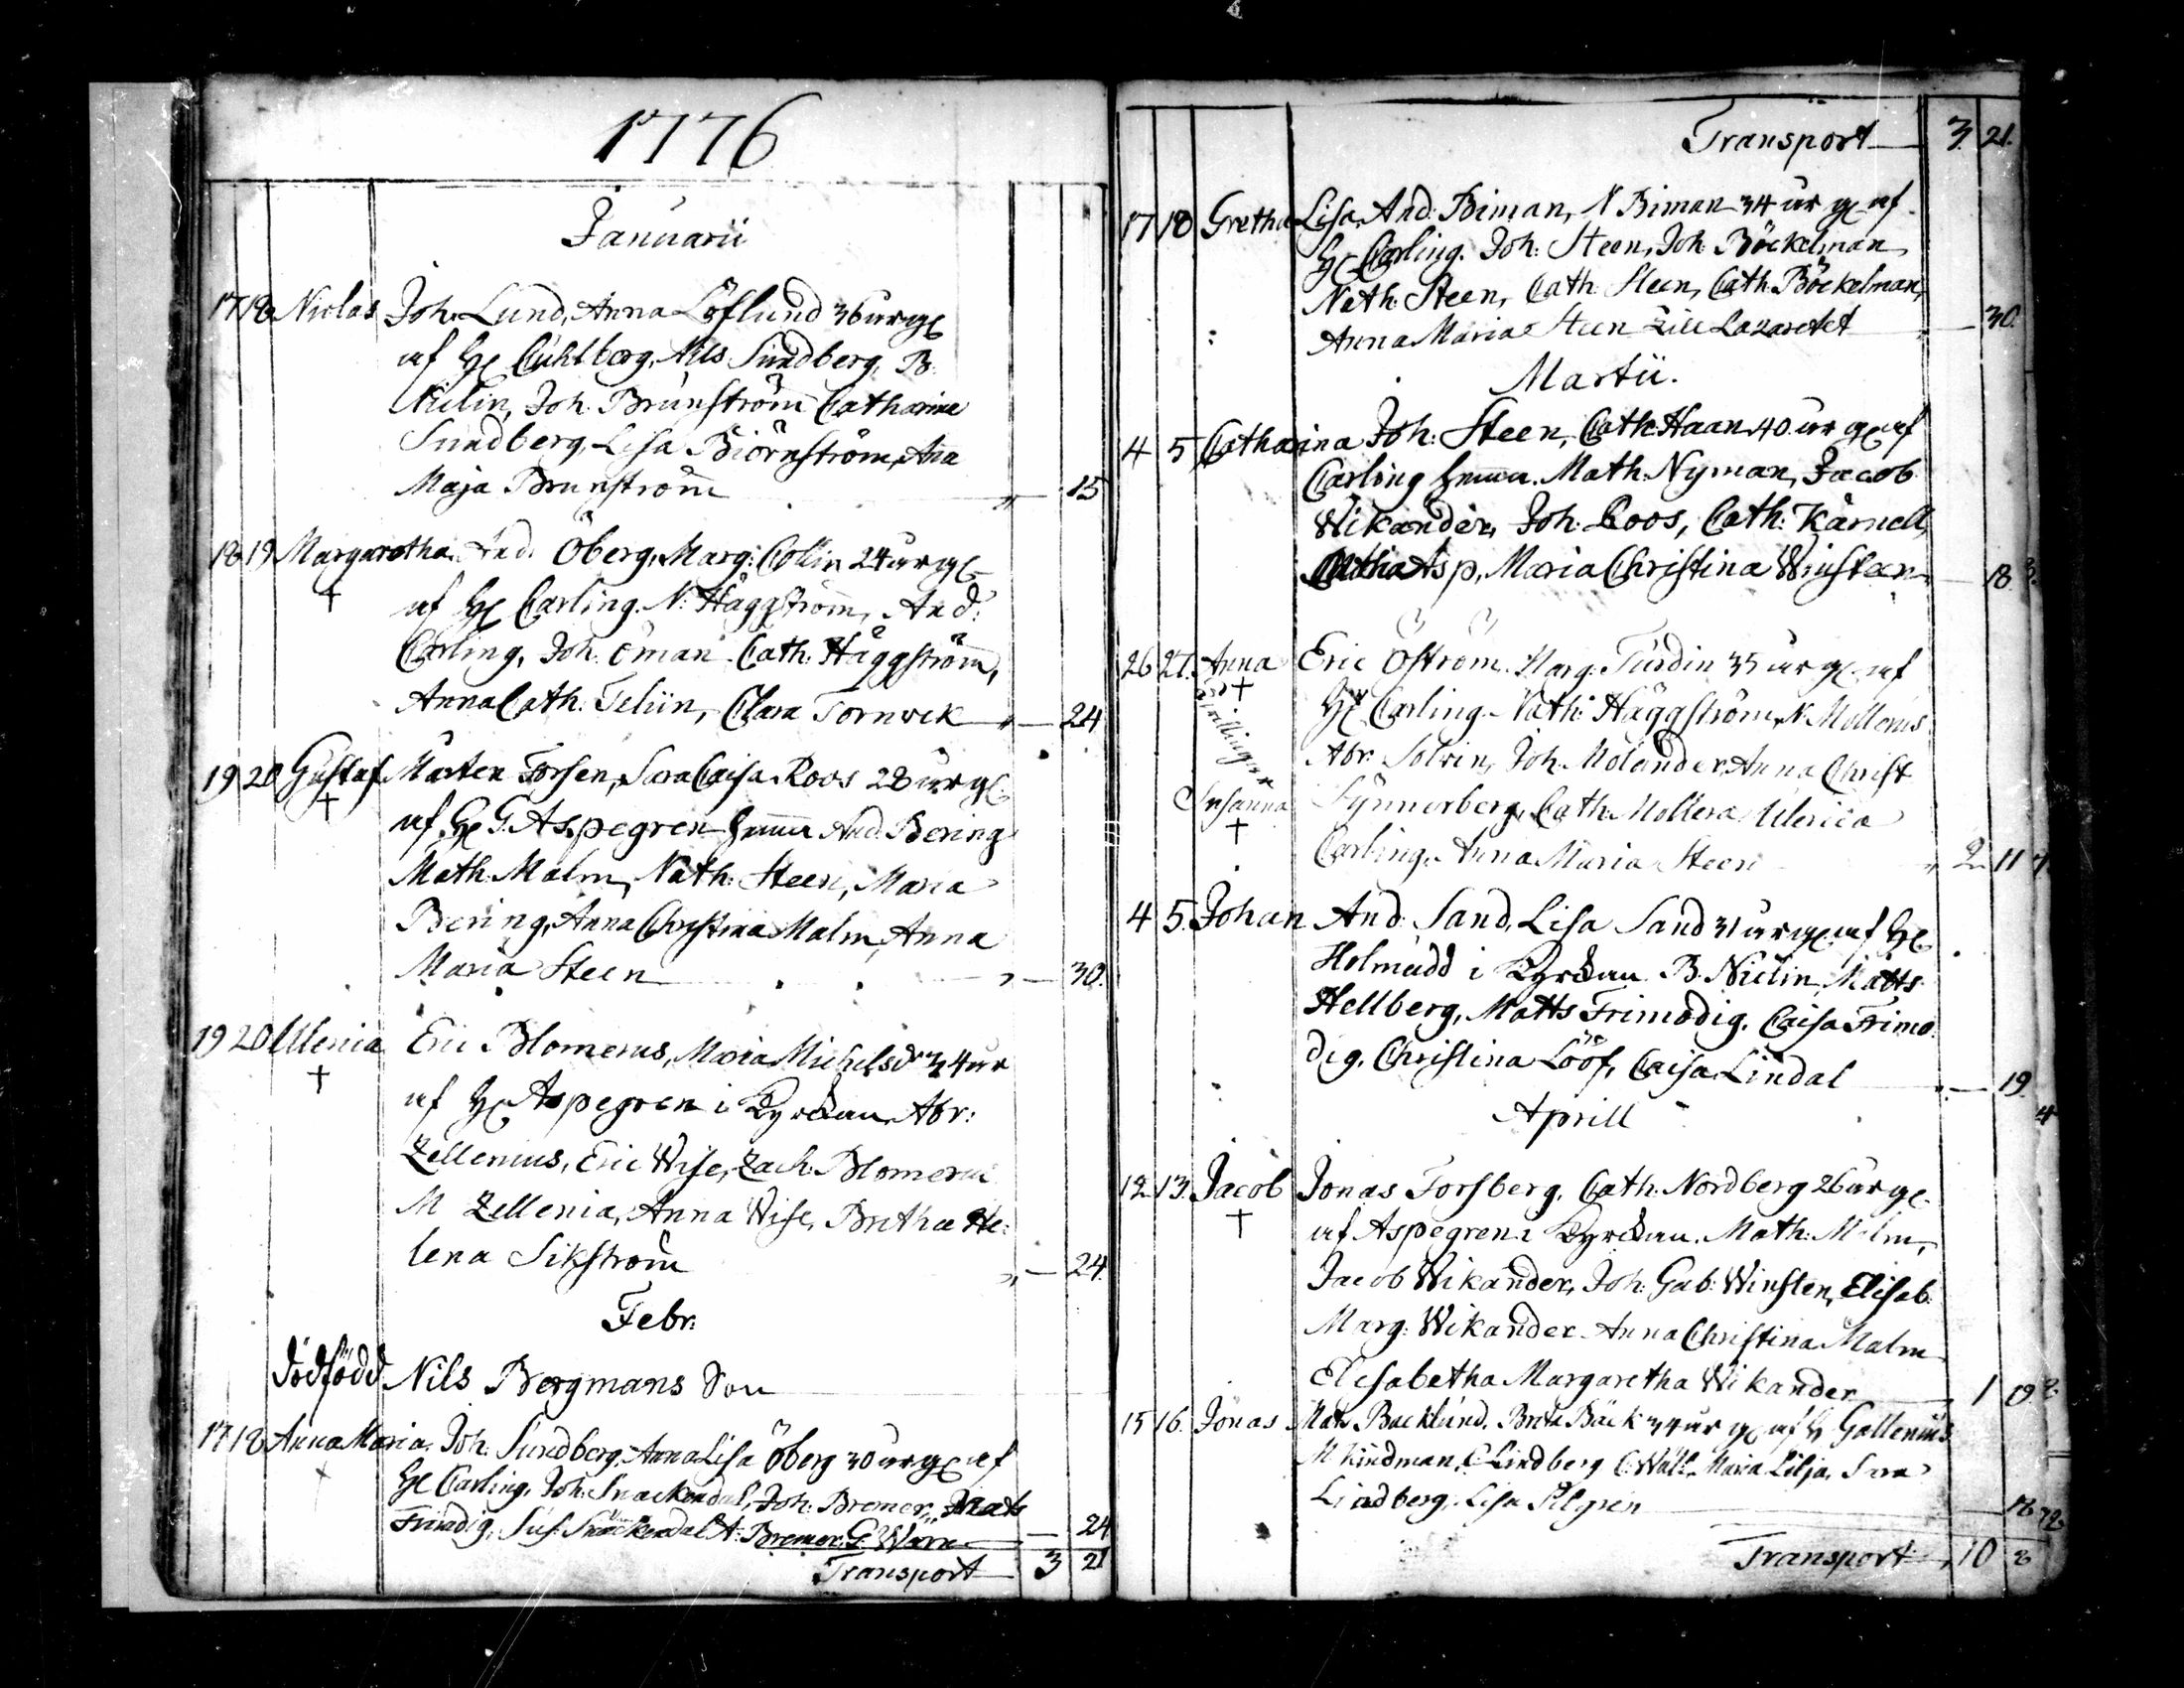 1776
Januarii
17 18 Niclas Joh. Lund, Anna Löflund 36 år g.
af H. Cuhlberg, Nils Sundberg, B.
Nielin, Joh. Brunström Catharina
Sundberg, Lisa Biörnström, Aña
Maja Brunström 15
18 19 Margaretha And. Öberg, Marg: Collin 24 år g.
† af H. Carling. N: Häggström, And:
Carling, Joh. Öman Cath: Häggström,
Anna Cath. Telin, Clara Tornvek — 24
19 20 Gustaf Mårten Forsen, Sara Caisa Roos 28 år g.
† af H. G. Aspegren hemma And. Bering
Math. Malm, Nath: Steen, Maria
Bering, Anna Christina Malm, Anna
Maria Steen — 30.
19 20 Ulerica Eric Blomerus, Maria Michelsdr 34 år
† af H. Aspegren i Kyrckan Abr:
Zellenius, Eric Wise, Zach. Blomerus
M Zellenia, Anna Wise, Britha He:
lena Sikström — 24.
Febr:
Dödfödd Nils Bergmans Son
17 18 Anna Maria. Joh: Sundberg, Anna Lisa Öberg 30 år g. af
H. Carling, Joh: Snackendal, Joh: Bremer, Mats
Frimdig, Sus. Snackendal A: Bremer. G. Warn — 24
Transport 3 21
Transport 3. 21.
17 18 Gretha Lisa, And: Biman, N Biman 34 år g. af
H. Carling. Joh: Steen, Joh: Böckelman
Nath: Steen, Cath: Steen, Cath: Böckelman,
Anna Maria Steen Till Lazaretet — 30.
Martii.
4 5 Catharina Joh: Steen, Cath: Haan 40 år g. af
Carling hemma. Math: Nyman, Jacob
Wikander, Joh: Roos, Cath: Karnell,
Asp, Maria Christina Winsten — 18
26 27. Anna Eric Öström. Marg: Turdin 35 år g. af
† H. Carling. Nath: Häggström, N. Mollerus
Tvillingar Abr: Solvin, Joh: Molander, Anna Christ
Susanna Synnerberg, Cath: Mollera Ulerica
† Carling, Anna Maria Steen 2 11
4 5. Johan And: Sand, Lisa Sand 31 år g. af H.
Holmudd i Kyrckan B. Nielin, Matts
Hellberg, Matts Frimodig, Caisa Frimo:
dig, Christina Lööf, Caisa Lindal — 19.
4
Aprill
12 13. Jacob Jonas Forsberg, Cath: Nordberg 26 år g.
† af Aspegren i Kyrckan. Math: Malm,
Jacob Wikander, Joh: Gab: Winsten, Elisab:
Marg: Wikander Anna Christina Malm
Elisabetha Margaretha Wikander 1 19
15 16. Jonas Mats Backlund, Brita Bäck 34 år g. af H Gallenius
M Kindman, C Lindberg C. Wäll, Maria Lilja, Sara
Lindberg, Lisa
Transport 10